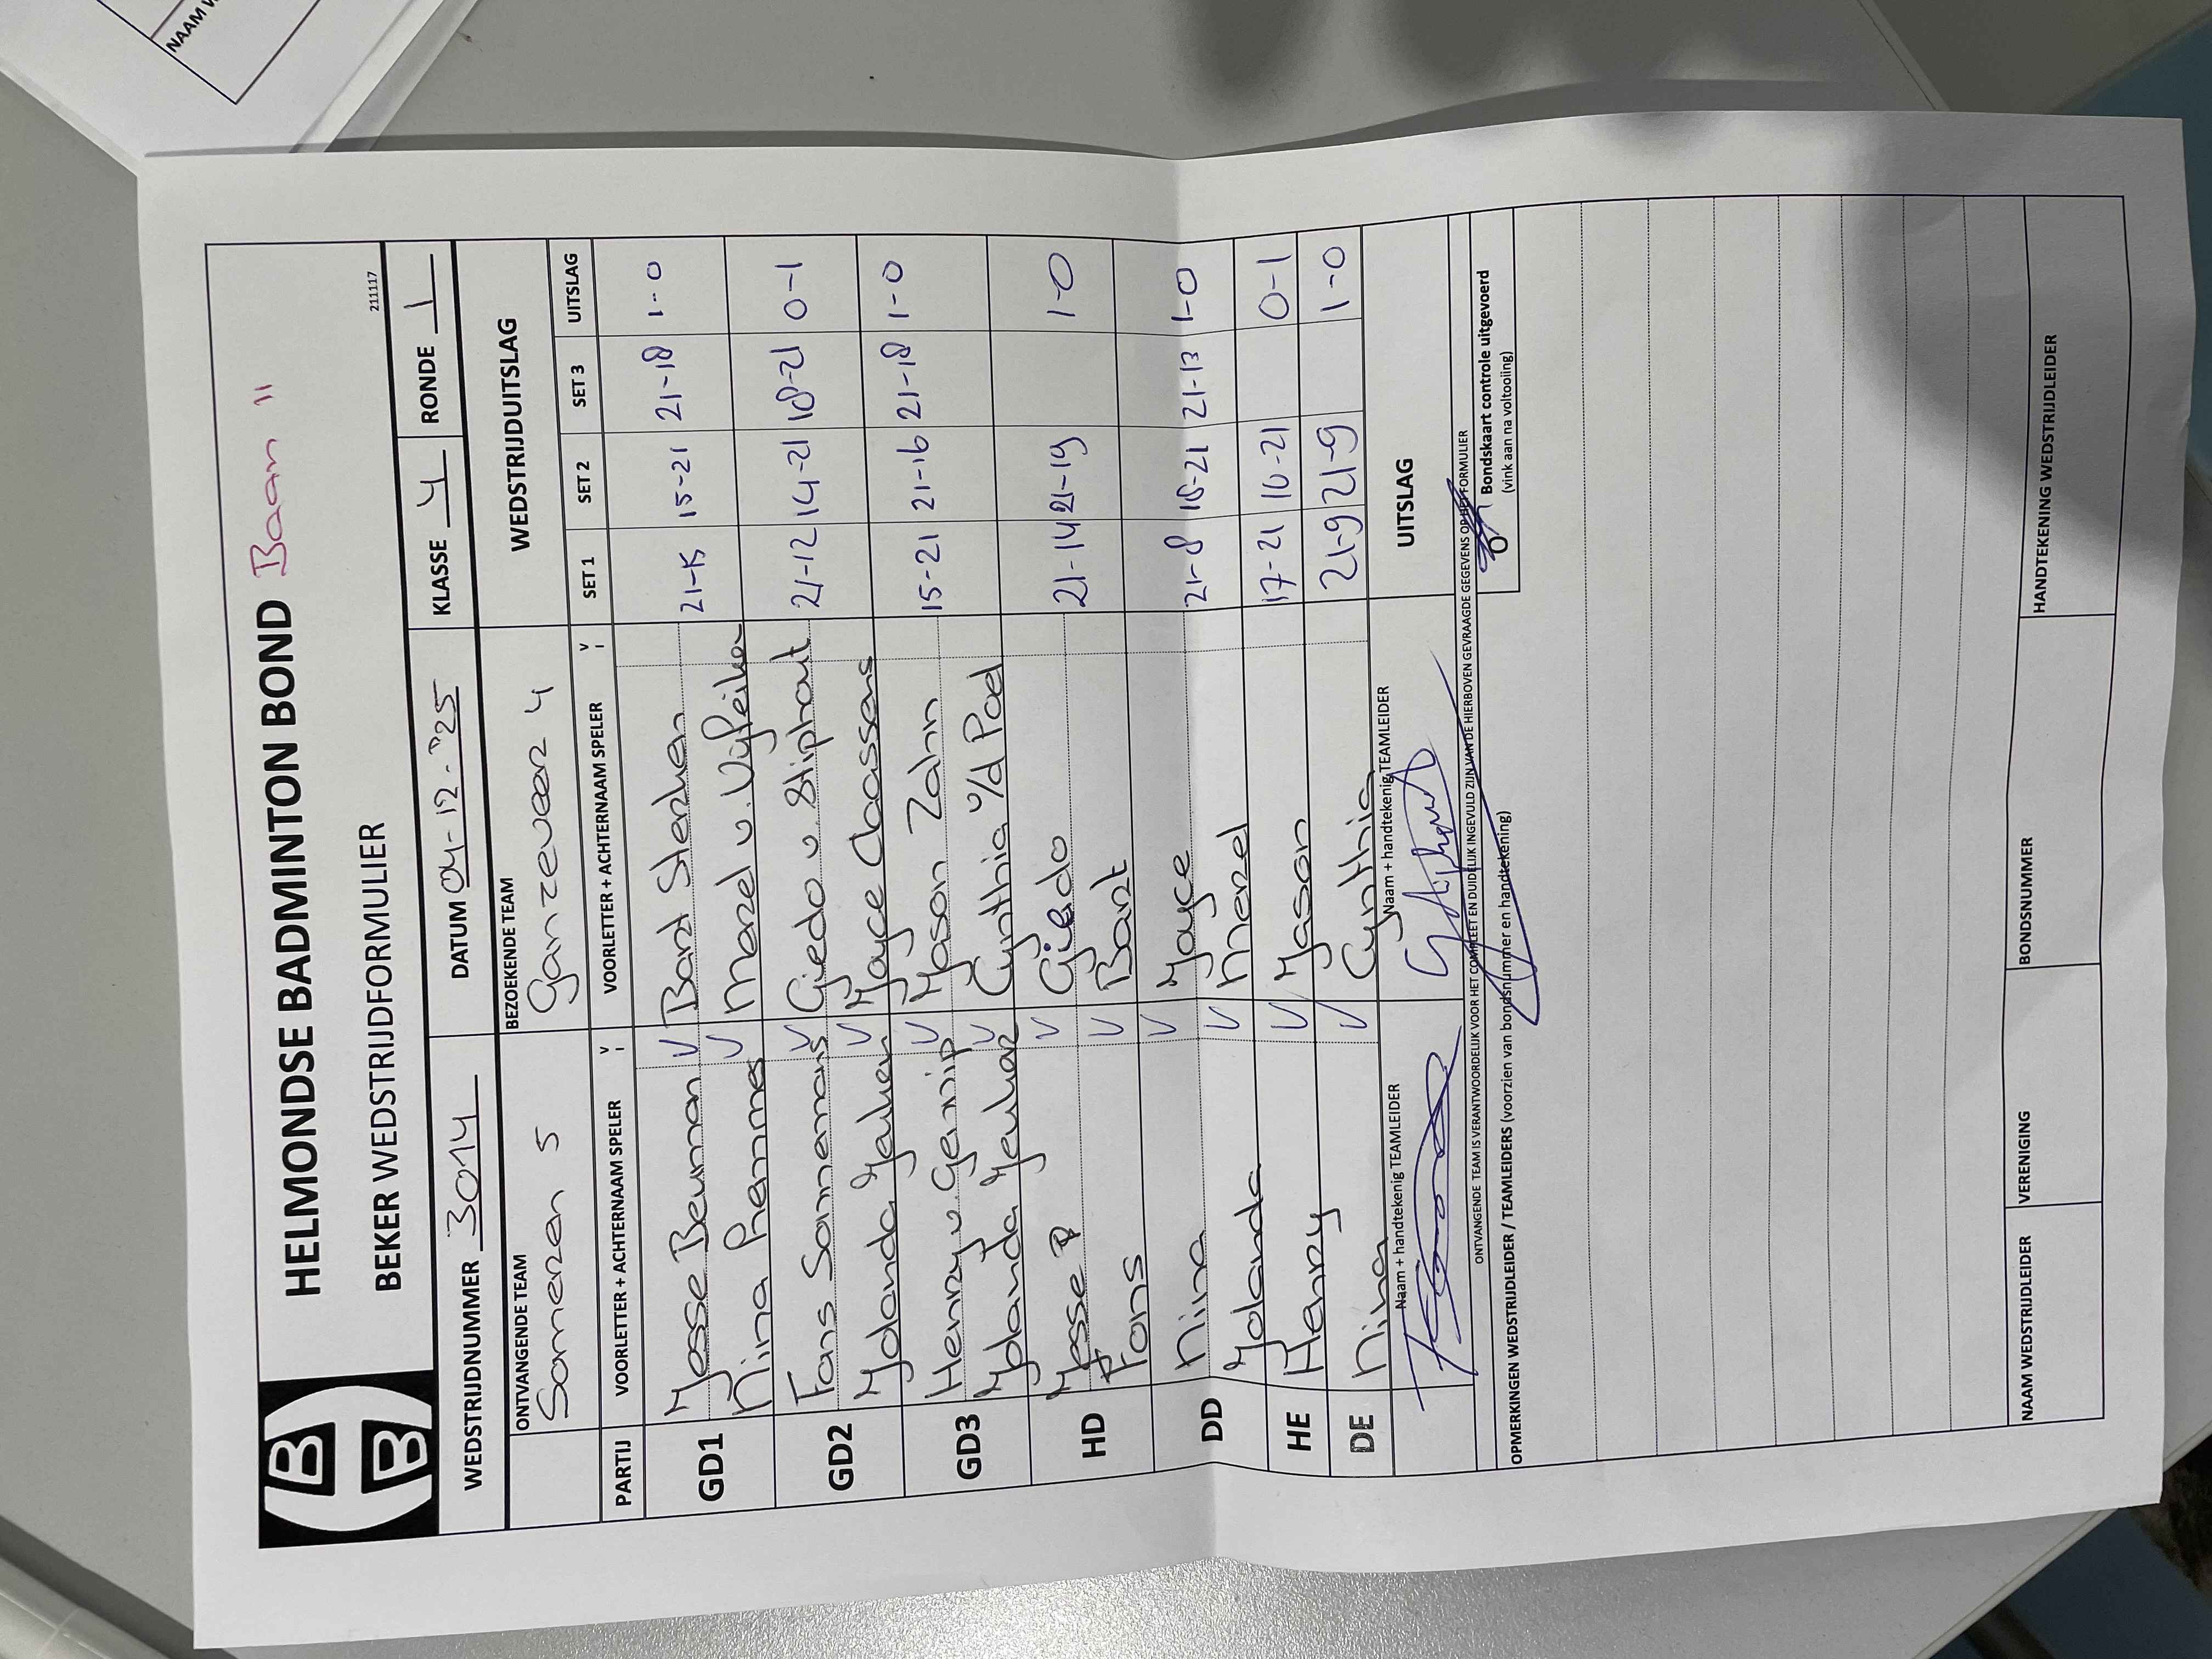 NAAM
HELMONDSE BADMINTON BOND Baan 11
BEKER WEDSTRIJDFORMULIER
211117
WEDSTRIJDNUMMER 3014 DATUM 04-12-'25 KLASSE 4 RONDE 1
ONTVANGENDE TEAM BEZOEKENDE TEAM WEDSTRIJDUITSLAG
Someren 5 Ganzeveer 4
PARTIJ VOORLETTER + ACHTERNAAM SPELER V VOORLETTER + ACHTERNAAM SPELER V SET 1 SET 2 SET 3 UITSLAG
GD1 Josse V Bart 21-15 15-21 21-18 1-0
Nina V Merel v.
GD2 Fons V Giedo v. Stiphout 21-12 14-21 18-21 0-1
Jolanda V Joyce Claassens
GD3 Henry v. Gennip V Jason Zahn 15-21 21-16 21-18 1-0
Jolanda V Cynthia v/d Poel
HD Josse V Giedo 21-14 21-19 1-0
Fons V Bart
DD Nina V Joyce 21-8 18-21 21-13 1-0
Jolanda V Merel
HE Henry V Jason 17-21 16-21 0-1
DE Nina V Cynthia 21-9 21-9 1-0
Naam + handtekenig TEAMLEIDER Naam + handtekenig TEAMLEIDER UITSLAG
ONTVANGENDE TEAM IS VERANTWOORDELIJK VOOR HET COMPLEET EN DUIDELIJK INGEVULD ZIJN VAN DE HIERBOVEN GEVRAAGDE GEGEVENS OP HET FORMULIER
Bondskaart controle uitgevoerd
(vink aan na voltooling)
OPMERKINGEN WEDSTRIJDLEIDER / TEAMLEIDERS (voorzien van bondsnummer en handtekening)
NAAM WEDSTRIJDLEIDER VERENIGING BONDSNUMMER HANDTEKENING WEDSTRIJDLEIDER